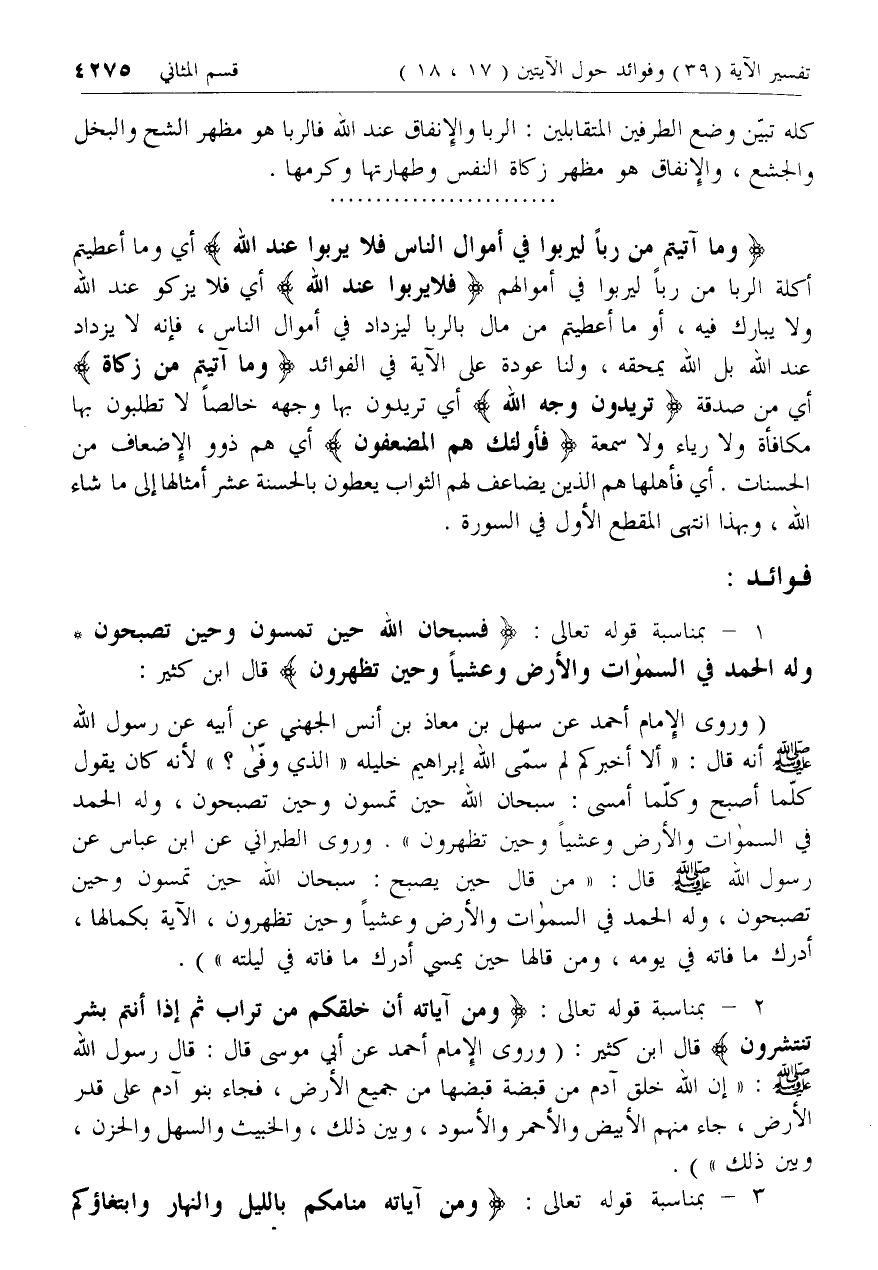 تفسير الآية ( ٣٩ ) وفوائد حول الآيتين ( ١٧ ، ١٨ ) قسم المثاني ٤٢٧٥
كله تبيّن وضع الطرفين المتقابلين : الربا والإنفاق عند الله فالربا هو مظهر الشح والبخل
والجشع ، والإنفاق هو مظهر زكاة النفس وطهارتها وكرمها .
........................
﴿ وما آتيتم من رباً ليربوا في أموال الناس فلا يربوا عند الله ﴾ أي وما أعطيتم
أكلة الربا من رباً ليربوا في أموالهم ﴿ فلايربوا عند الله ﴾ أي فلا يزكو عند الله
ولا يبارك فيه ، أو ما أعطيتم من مال بالربا ليزداد في أموال الناس ، فإنه لا يزداد
عند الله بل الله يمحقه ، ولنا عودة على الآية في الفوائد ﴿ وما آتيتم من زكاة ﴾
أي من صدقة ﴿ تريدون وجه الله ﴾ أي تريدون بها وجهه خالصاً لا تطلبون بها
مكافأة ولا رياء ولا سمعة ﴿ فأولئك هم المضعفون ﴾ أي هم ذوو الإضعاف من
الحسنات . أي فأهلها هم الذين يضاعف لهم الثواب يعطون بالحسنة عشر أمثالها إلى ما شاء
الله ، وبهذا انتهى المقطع الأول في السورة .
فوائد :
١ – بمناسبة قوله تعالى : ﴿ فسبحان الله حين تمسون وحين تصبحون *
وله الحمد في السمٰوات والأرض وعشياً وحين تظهرون ﴾ قال ابن كثير :
( وروى الإمام أحمد عن سهل بن معاذ بن أنس الجهني عن أبيه عن رسول الله
ﷺ أنه قال : « ألا أخبركم لم سمّى الله إبراهيم خليله « الذي وفّىٰ ؟ » لأنه كان يقول
كلّما أصبح وكلّما أمسى : سبحان الله حين تمسون وحين تصبحون ، وله الحمد
في السمٰوات والأرض وعشياً وحين تظهرون » . وروى الطبراني عن ابن عباس عن
رسول الله ﷺ قال : « من قال حين يصبح : سبحان الله حين تمسون وحين
تصبحون ، وله الحمد في السمٰوات والأرض وعشياً وحين تظهرون ، الآية بكمالها ،
أدرك ما فاته في يومه ، ومن قالها حين يمسي أدرك ما فاته في ليلته » ) .
٢ – بمناسبة قوله تعالى : ﴿ ومن آياته أن خلقكم من تراب ثم إذا أنتم بشر
تنتشرون ﴾ قال ابن كثير : ( وروى الإمام أحمد عن أبي موسى قال : قال رسول الله
ﷺ : « إن الله خلق آدم من قبضة قبضها من جميع الأرض ، فجاء بنو آدم على قدر
الأرض ، جاء منهم الأبيض والأحمر والأسود ، وبين ذلك ، والخبيث والسهل والحزن ،
وبين ذلك » ) .
٣ – بمناسبة قوله تعالى : ﴿ ومن آياته منامكم بالليل والنهار وابتغاؤكم